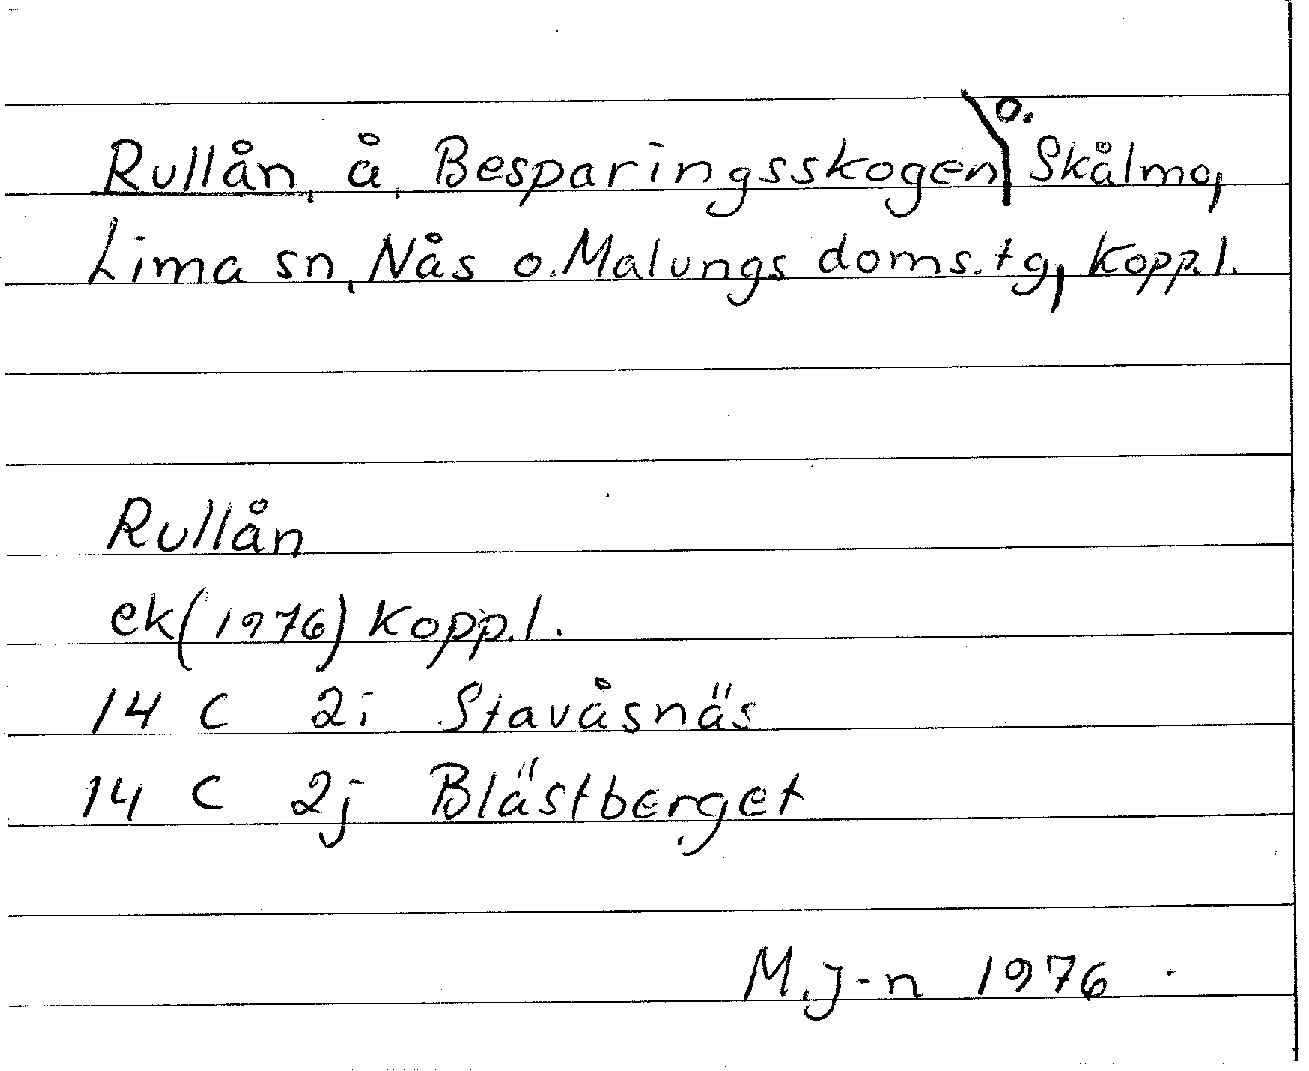 Rullån, å, Besparingsskogen o. Skålmo,
Lima sn, Nås o. Malungs doms. tg, Kopp. l.
Rullån
ek (1976) Kopp. l.
14 C 2i Stavåsnäs
14 C 2j Blästberget
M. J-n 1976